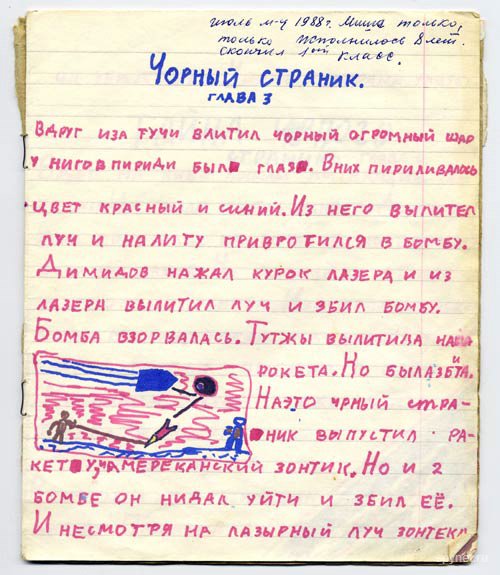 июль м-ц 1988г. Миша только,
только исполнилось 8 лет.
скончил 1ый класс.
ЧОРНЫЙ СТРАНИК.
ГЛАВА 3
ВДРУГ ИЗА ТУЧИ ВЛИТИЛ ЧОРНЫЙ ОГРОМНЫЙ ШАР
У НИГО ВПИРИДИ БЫЛИ ГЛАЗА. В НИХ ПИРИЛИВАЛОСЬ
ЦВЕТ КРАСНЫЙ И СИНИЙ. ИЗ НЕГО ВЫЛИТЕЛ
ЛУЧ И НАЛИТУ ПРИВРОТИЛСЯ В БОМБУ.
ДИМИДОВ НАЖАЛ КУРОК ЛАЗЕРА И ИЗ
ЛАЗЕРА ВЫЛИТИЛ ЛУЧ И ЗБИЛ БОМБУ.
БОМБА ВЗОРВАЛАСЬ. ТУТЖЫ ВЫЛИТИЛА НАША
РОКЕТА. НО БЫЛА ЗБИТА.
НАЭТО ЧРНЫЙ СТРА-
НИК ВЫПУСТИЛ РА-
КЕТУ, НА МЕРЕКАНСКИЙ ЗОНТИК. НО И 2
БОМБЕ ОН НИДАЛ УЙТИ И ЗБИЛ ЕЁ.
И НЕСМОТРЯ НА ЛАЗЫРНЫЙ ЛУЧ ЗОНТЕКА